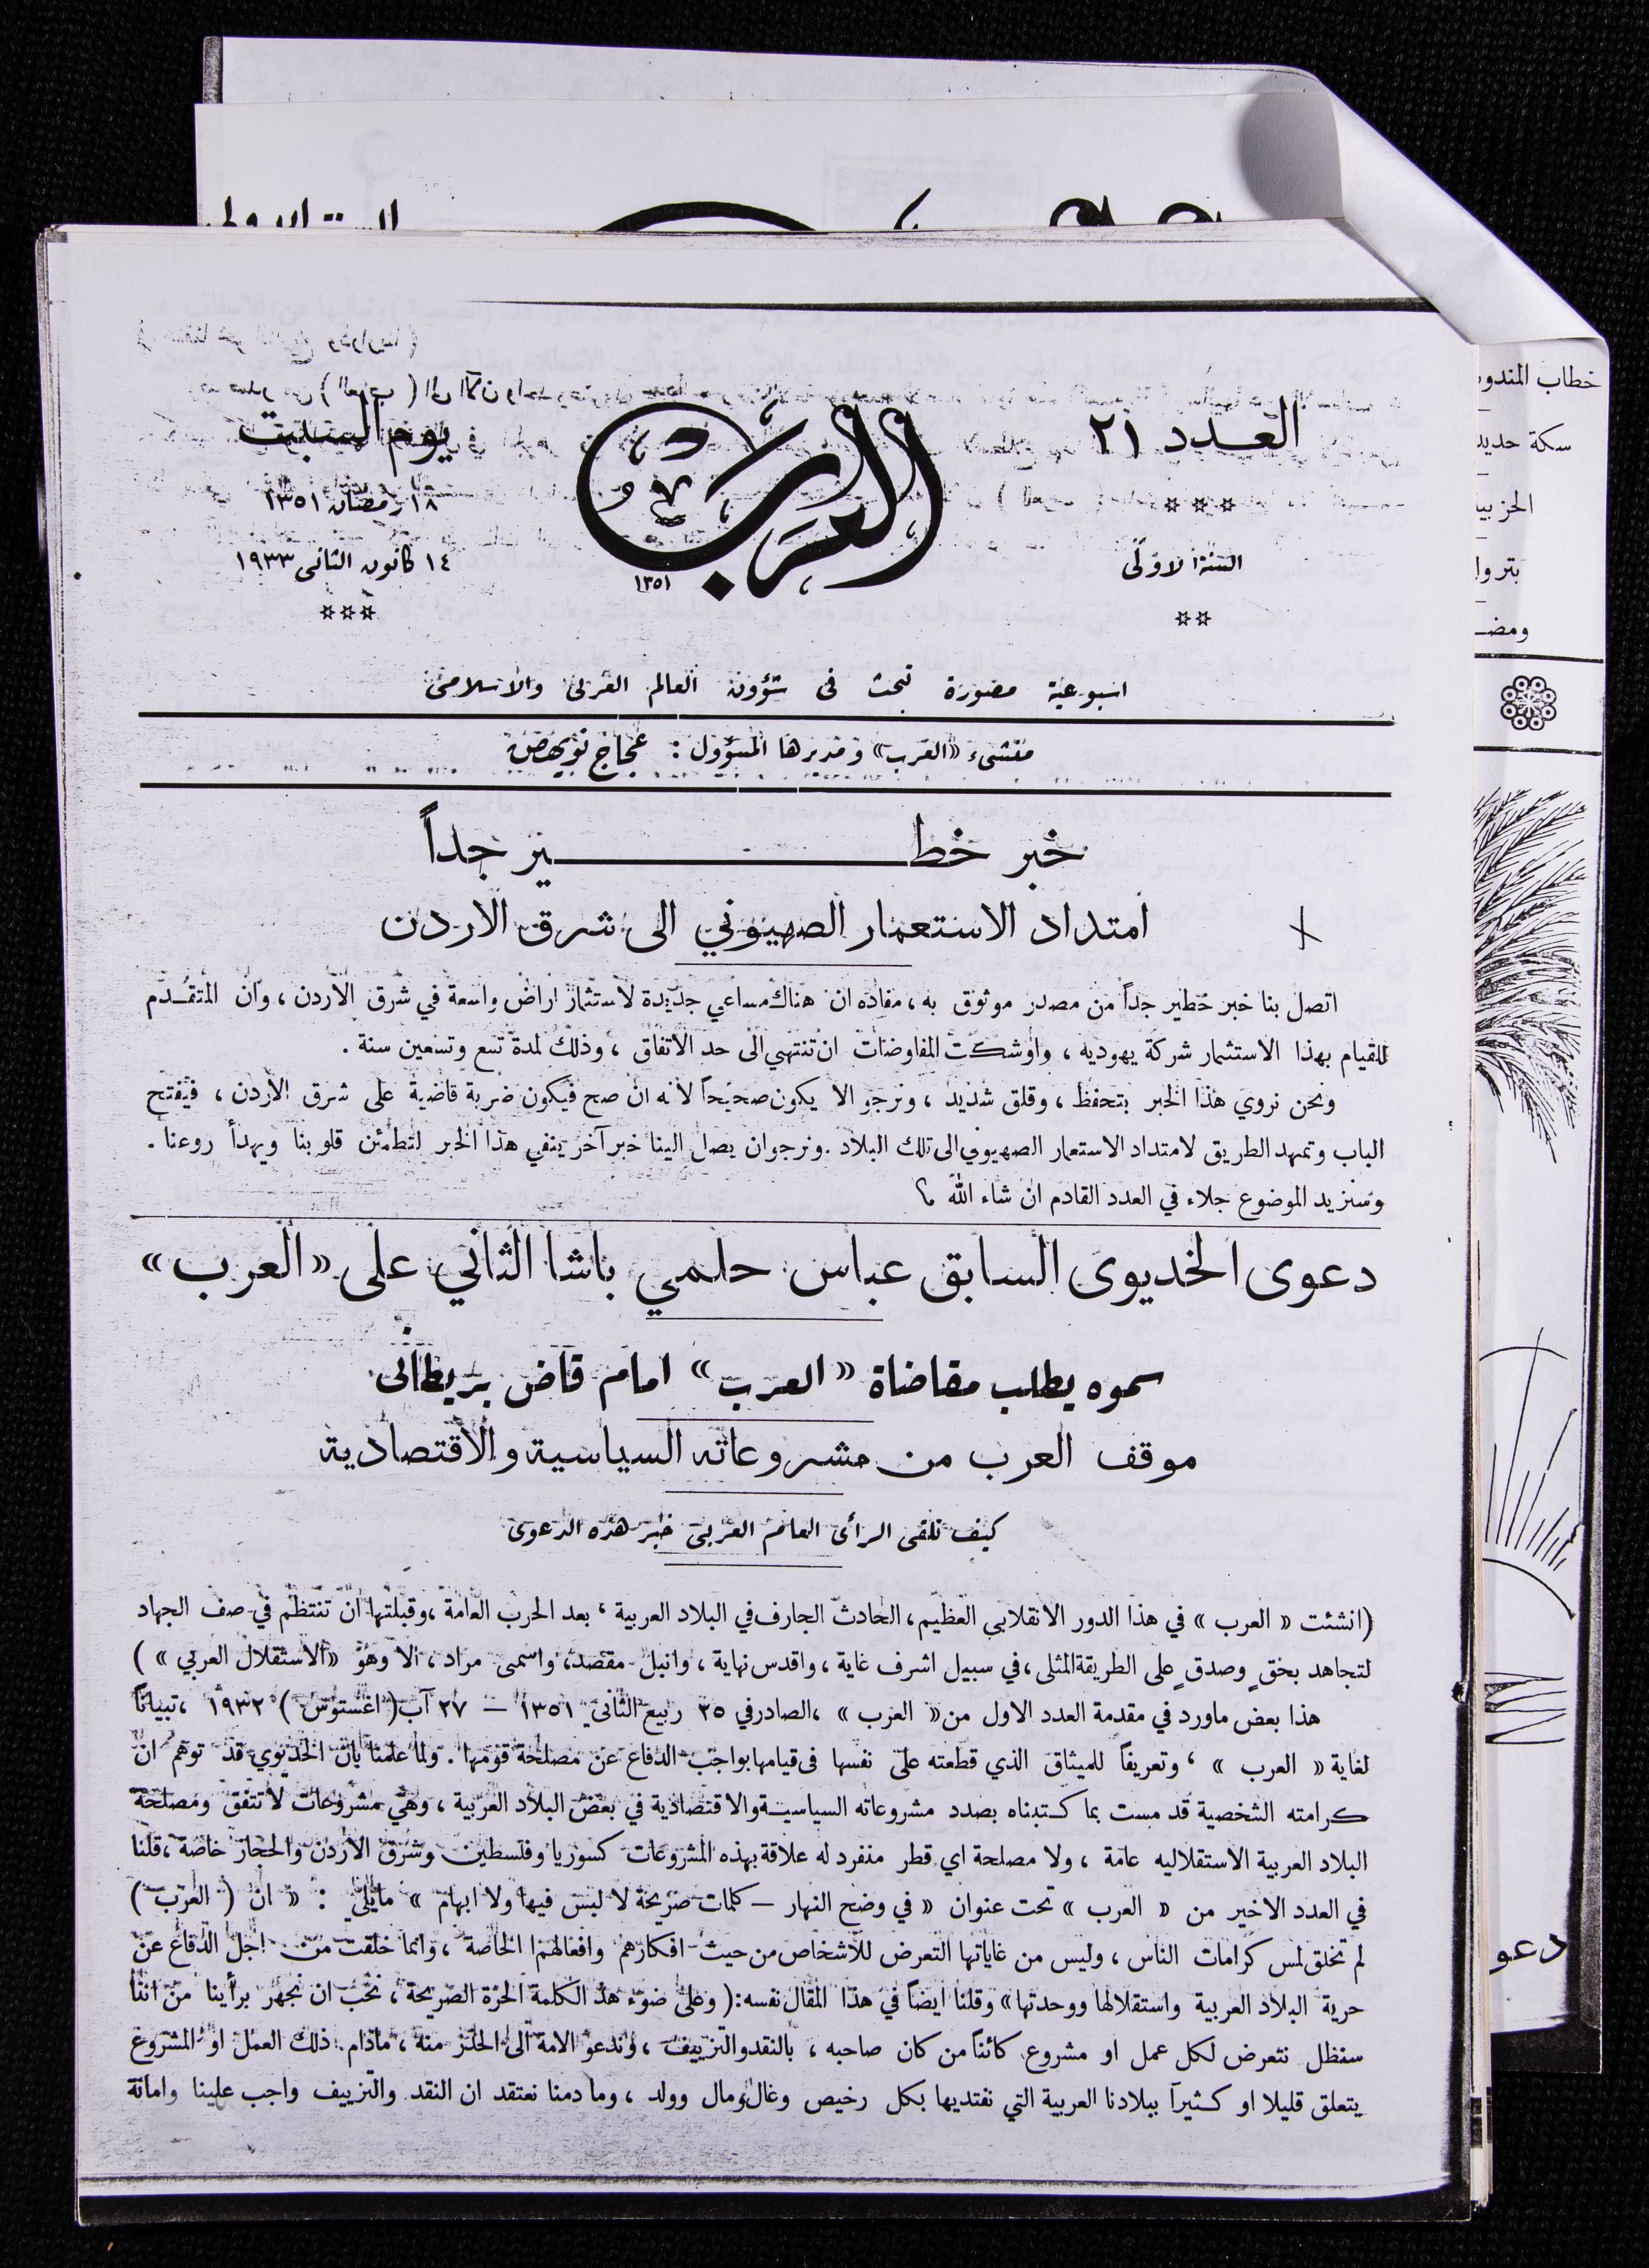 العدد ٢١
***
السنة الاولى
**
العرب
١٣٥١
يوم السبت
١٨ رمضان ١٣٥١
١٤ كانون الثاني ١٩٣٣
***
اسبوعية مصورة تبحث في شؤون العالم العربي والاسلامي
منشىء «العرب» ومديرها المسؤول : عجاج نويهض
خبر خطير جداً
امتداد الاستعمار الصهيوني الى شرق الاردن
اتصل بنا خبر خطير جداً من مصدر موثوق به ، مفاده ان هناك مساعي جديدة لاستثمار اراض واسعة في شرق الاردن ، وان المتقدم
للقيام بهذا الاستثمار شركة يهودية ، واوشكت المفاوضات ان تنتهي الى حد الاتفاق ، وذلك لمدة تسع وتسعين سنة .
ونحن نروي هذا الخبر بتحفظ ، وقلق شديد ، ونرجو الا يكون صحيحاً لانه ان صح فيكون ضربة قاضية على شرق الاردن ، فيفتح
الباب وتمهد الطريق لامتداد الاستعمار الصهيوني الى تلك البلاد . ونرجو ان يصل الينا خبر آخر ينفي هذا الخبر لتطمئن قلوبنا ويهدأ روعنا .
وسنزيد الموضوع جلاء في العدد القادم ان شاء الله ؟
دعوى الخديوى السابق عباس حلمي باشا الثاني على «العرب»
سموه يطلب مقاضاة «العرب» امام قاض بريطانى
موقف العرب من مشروعاته السياسية والاقتصادية
كيف تلقى الرأى العام العربى خبر هذه الدعوى
(انشئت « العرب » في هذا الدور الانقلابي العظيم ، الحادث الجارف في البلاد العربية ، بعد الحرب العامة ، وقبلتها ان تنتظم في صف الجهاد
لتجاهد بحقٍ وصدقٍ على الطريقة المثلى ، في سبيل اشرف غاية ، واقدس نهاية ، وانبل مقصد ، واسمى مراد ، الا وهو «الاستقلال العربي » )
هذا بعض ماورد في مقدمة العدد الاول من « العرب » ، الصادر في ٢٥ ربيع الثاني ١٣٥١ — ٢٧ آب ( اغستوس ) ١٩٣٢ ، تبياناً
لغاية « العرب » ، وتعريفاً للميثاق الذي قطعته على نفسها في قيامها بواجب الدفاع عن مصلحة قومها . ولما علمنا بان الخديوي قد توهم ان
كرامته الشخصية قد مست بما كتبناه بصدد مشروعاته السياسية والاقتصادية في بعض البلاد العربية ، وهي مشروعات لا تتفق ومصلحة
البلاد العربية الاستقلاليه عامة ، ولا مصلحة اي قطر منفرد له علاقة بهذه المشروعات كسوريا وفلسطين وشرق الاردن والحجاز خاصة ، قلنا
في العدد الاخير من « العرب » تحت عنوان « في وضح النهار — كلمات صريحة لا لبس فيها ولا ابهام » مايلي : « ان ( العرب )
لم تخلق لمس كرامات الناس ، وليس من غاياتها التعرض للأشخاص من حيث افكارهم وافعالهم الخاصة ، وانما خلقت من اجل الدفاع عن
حرية البلاد العربية واستقلالها ووحدتها» وقلنا ايضاً في هذا المقال نفسه : ( وعلى ضوء هذ الكلمة الحرة الصريحة ، نحب ان نجهر برأينا من اننا
سنظل نتعرض لكل عمل او مشروع كائناً من كان صاحبه ، بالنقد والتزييف ، وندعو الامة الى الحذر منه ، مادام ذلك العمل او المشروع
يتعلق قليلا او كثيراً ببلادنا العربية التي نفتديها بكل رخيص وغال ومال وولد ، وما دمنا نعتقد ان النقد والتزييف واجب علينا وامانة
خطاب المندو
سكة حديد
ومضـ
دعو